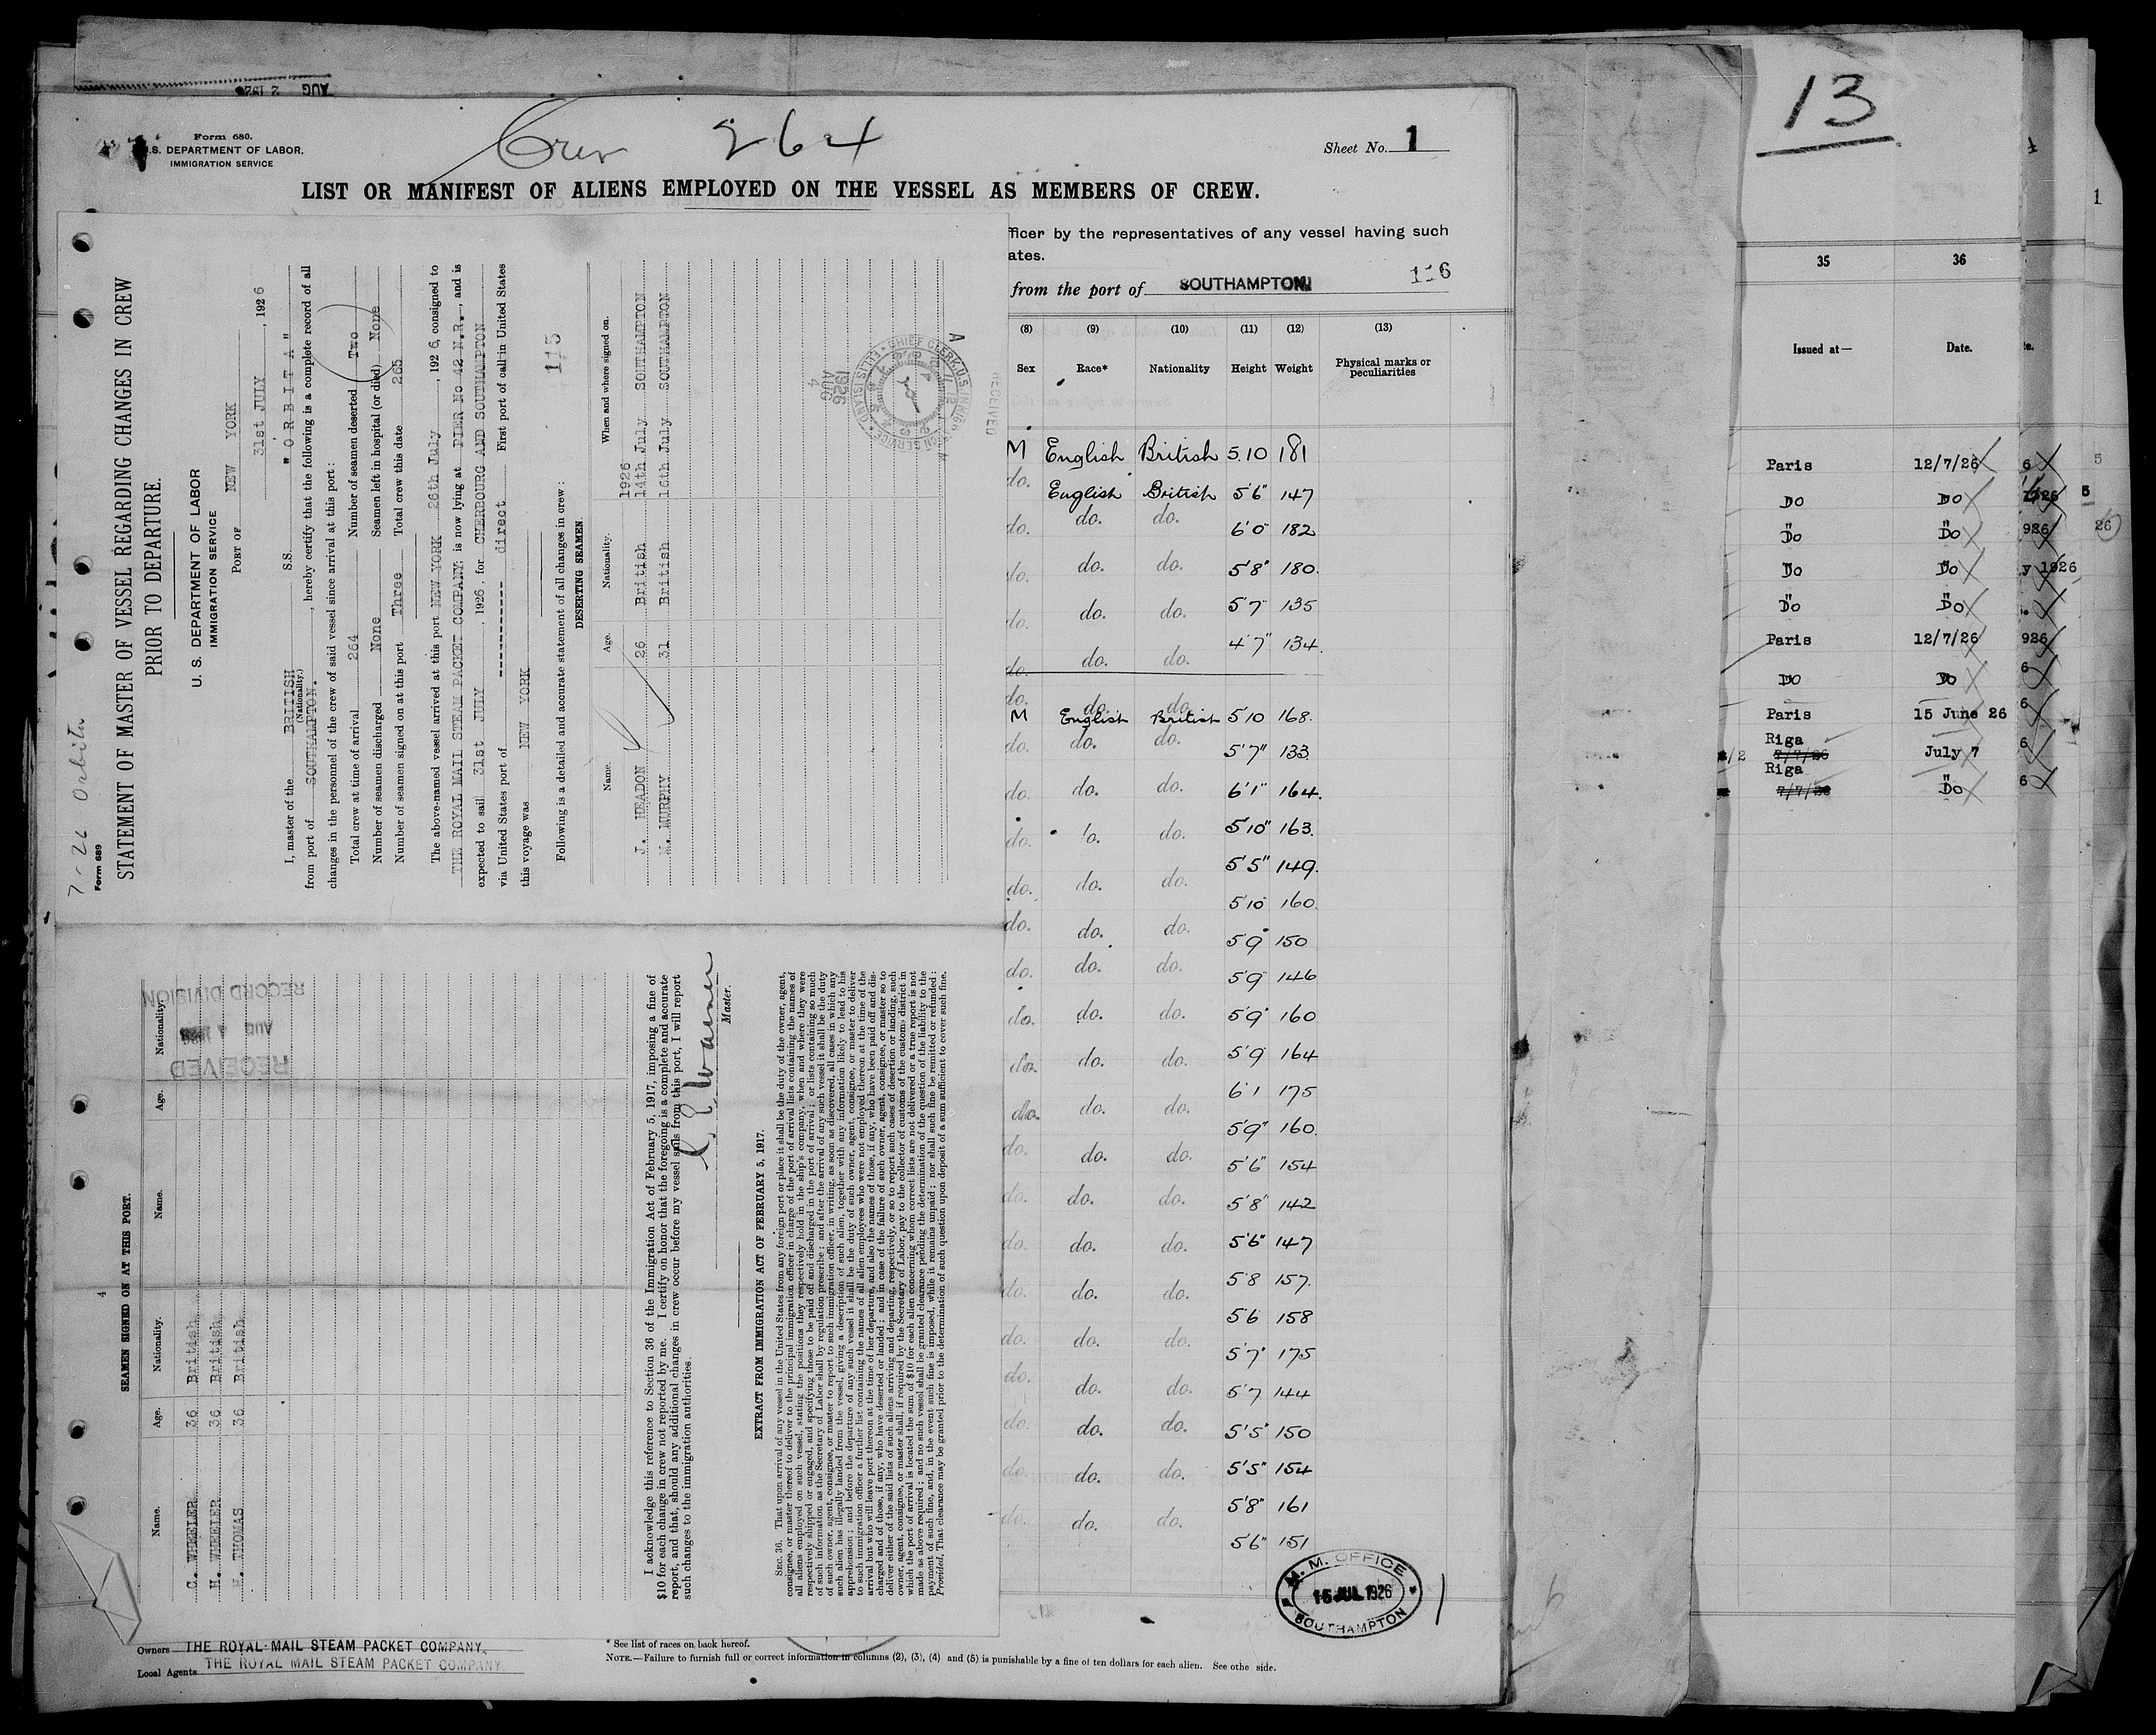 AUG 2 192
Form 680.
U.S. DEPARTMENT OF LABOR.
IMMIGRATION SERVICE
Crew 264
Sheet No. 1
LIST OR MANIFEST OF ALIENS EMPLOYED ON THE VESSEL AS MEMBERS OF CREW.
fficer by the representatives of any vessel having such
ates.
from the port of SOUTHAMPTON. 116
(8) (9) (10) (11) (12) (13)
Sex Race* Nationality Height Weight Physical marks or peculiarities
M English British 5.10 181
do. English British 5'6" 147
do. do. do. 6'0" 182
do. do. do. 5'8" 180.
do. do. do. 5'7" 135
do. do. do. 4'7" 134.
do. do. do.
M English British 5'10 168.
do. do. do. 5'7" 133.
do. do. do. 6'1" 164.
do. do. do. 5'10" 163.
5'5" 149.
do. do. do. 5'10 160.
do. do. do. 5'9" 150
do. do. do. 5'9 146
do. do. do. 5'9" 160
do. do. do. 5'9 164
6'1 175
do. do. do. 5'9" 160.
do. do. do. 5'6" 154
do. do. do. 5'8" 142
do. do. do. 5'6" 147
do. do. do. 5'8 157.
do. do. do. 5'6 158
do. do. do. 5'7" 175
do. do. do. 5'7 144
do. do. do. 5'5" 150
do. do. do. 5'5" 154
do. do. do. 5'8" 161
5'6" 151
M. M. OFFICE
15 JUL 1926
SOUTHAMPTON
Owners THE ROYAL MAIL STEAM PACKET COMPANY.
Local Agents THE ROYAL MAIL STEAM PACKET COMPANY.
* See list of races on back hereof.
NOTE.—Failure to furnish full or correct information in columns (2), (3), (4) and (5) is punishable by a fine of ten dollars for each alien. See othe side.
7-26 Orbita
Form 689
STATEMENT OF MASTER OF VESSEL REGARDING CHANGES IN CREW
PRIOR TO DEPARTURE.
U. S. DEPARTMENT OF LABOR
IMMIGRATION SERVICE
PORT OF NEW YORK
31st JULY, 1926
I, master of the BRITISH S.S. "ORBITA"
(Nationality.)
from port of SOUTHAMPTON., hereby certify that the following is a complete record of all
changes in the personnel of the crew of said vessel since arrival at this port:
Total crew at time of arrival 264 Number of seamen deserted Two
Number of seamen discharged None Seamen left in hospital (or died) None
Number of seamen signed on at this port Three Total crew this date 265
The above-named vessel arrived at this port NEW YORK 26th July, 1926, consigned to
THE ROYAL MAIL STEAM PACKET COMPANY. is now lying at PIER No 42 N.R., and is
expected to sail 31st JULY, 1926. for CHERBOURG AND SOUTHAMPTON
via United States port of ---------- direct First port of call in United States
this voyage was NEW YORK 115
Following is a detailed and accurate statement of all changes in crew:
DESERTING SEAMEN.
Name. Age. Nationality. When and where signed on.
1926
J. HEADON 26 British 14th July SOUTHAMPTON
M. MURPHY 31 British 16th July SOUTHAMPTON
AUG 4 1926
CHIEF CLERK, U.S. IMMIGRATION SERVICE • ELLIS ISLAND
RECEIVED
SEAMEN SIGNED ON AT THIS PORT.
Name. Age. Nationality. Name. Age. Nationality.
C. WHEELER 36 British.
H. WHEELER 36 British.
H. THOMAS 36 British.
RECEIVED
AUG 4 1926
RECORD DIVISION
I acknowledge this reference to Section 36 of the Immigration Act of February 5, 1917, imposing a fine of
$10 for each change in crew not reported by me. I certify on honor that the foregoing is a complete and accurate
report, and that, should any additional changes in crew occur before my vessel sails from this port, I will report
such changes to the immigration authorities.
Master.
EXTRACT FROM IMMIGRATION ACT OF FEBRUARY 5, 1917.
SEC. 36. That upon arrival of any vessel in the United States from any foreign port or place it shall be the duty of the owner, agent,
consignee, or master thereof to deliver to the principal immigration officer in charge of the port of arrival lists containing the names of
all aliens employed on such vessel, stating the positions they respectively hold in the ship's company, when and where they were
respectively shipped or engaged, and specifying those to be paid off and discharged in the port of arrival; or lists containing so much
of such information as the Secretary of Labor shall by regulation prescribe; and after the arrival of any such vessel it shall be the duty
of such owner, agent, consignee, or master to report to such immigration officer, in writing, as soon as discovered, all cases in which any
such alien has illegally landed from the vessel, giving a description of such alien, together with any information likely to lead to his
apprehension; and before the departure of any such vessel it shall be the duty of such owner, agent, consignee, or master to deliver
to such immigration officer a further list containing the names of all alien employees who were not employed thereon at the time of the
arrival but who will leave port thereon at the time of her departure, and also the names of those, if any, who have been paid off and dis-
charged and of those, if any, who have deserted or landed; and in case of the failure of such owner, agent, consignee, or master so to
deliver either of the said lists of such aliens arriving and departing, respectively, or so to report such cases of desertion or landing, such
owner, agent, consignee, or master shall, if required by the Secretary of Labor, pay to the collector of customs of the customs district in
which the port of arrival is located the sum of $10 for each alien concerning whom correct lists are not delivered or a true report is not
made as above required; and no such vessel shall be granted clearance pending the determination of the question of the liability to the
payment of such fine, and, in the event such fine is imposed, while it remains unpaid; nor shall such fine be remitted or refunded:
Provided, That clearance may be granted prior to the determination of such question upon deposit of a sum sufficient to cover such fine.
13
35 36
Issued at— Date.
Paris 12/7/26
DO DO
Do Do
Do Do
Do Do
Paris 12/7/26
DO DO
Paris 15 June 26
Riga
7/7/26 July 7
Riga
7/7/26 Do